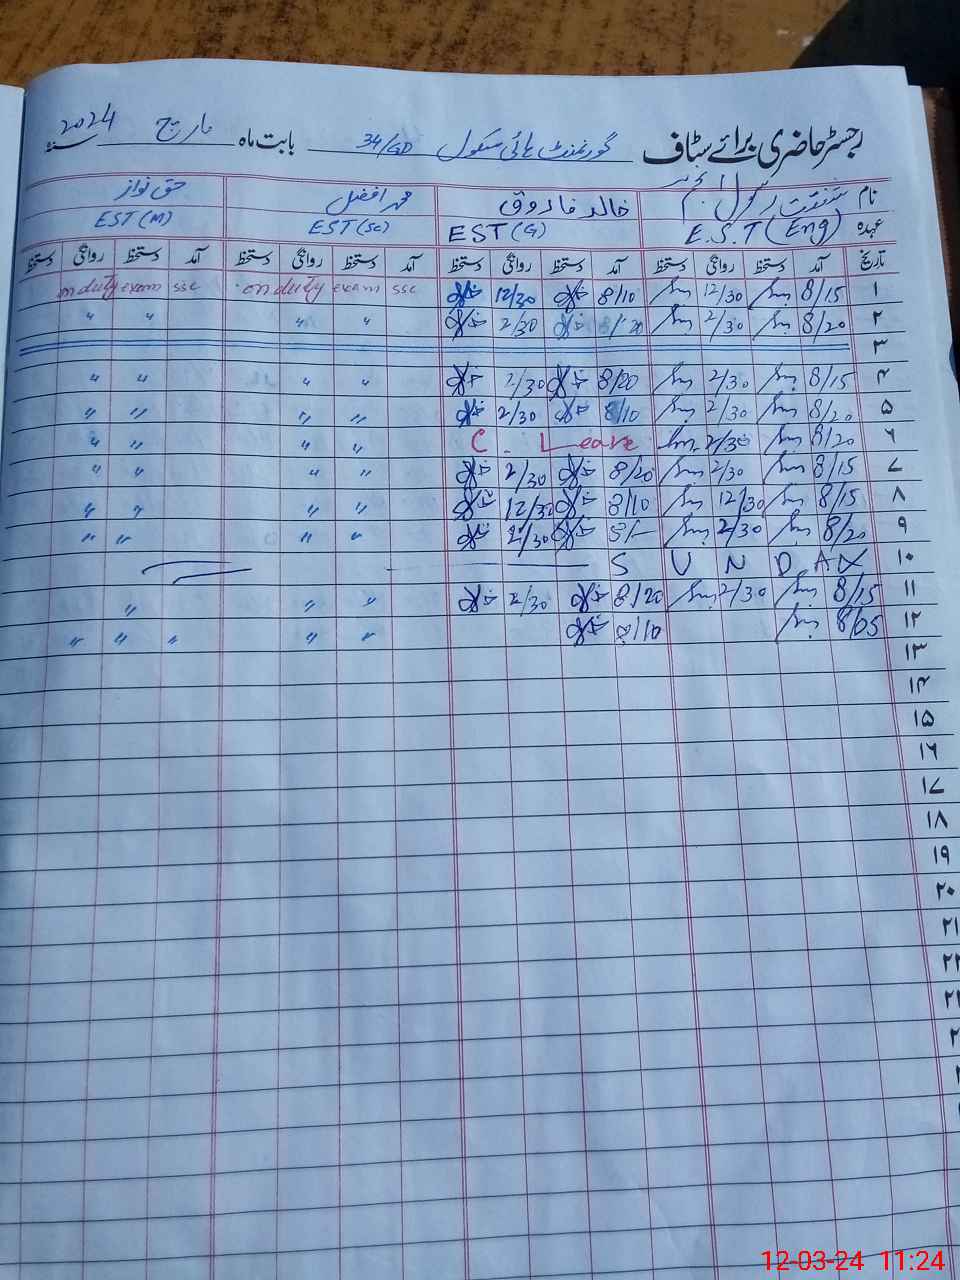 رجسٹر حاضری برائے سٹاف گورنمنٹ ہائی سکول 34/GD بابت ماہ مارچ 2024 سنہ
نام رسول انجم خالد فاروق محمد افضل حق نواز
عہدہ E.S.T (Eng) EST (G) EST (SC) EST (M)
تاریخ آمد دستخط روانگی دستخط آمد دستخط روانگی دستخط آمد دستخط روانگی دستخط آمد دستخط روانگی دستخط
١ 8/15 12/30 8/10 12/30 on duty exam ssc on duty exam ssc
٢ 8/20 2/30 8/20 2/30 " " " "
٣
٤ 8/15 2/30 8/20 2/30 " " " "
٥ 8/20 2/30 8/10 2/30 " " " "
٦ 8/20 2/30 C. Leave " " " "
٧ 8/15 2/30 8/20 2/30 " " " "
٨ 8/15 12/30 8/10 12/30 " " " "
٩ 8/20 2/30 8/- 2/30 " " " "
١٠ S U N D A Y
١١ 8/15 2/30 8/20 2/30 " " "
١٢ 8/05 8/10 " " " " "
١٣
١٤
١٥
١٦
١٧
١٨
١٩
٢٠
٢١
٢٢
٢٣
12-03-24 11:24